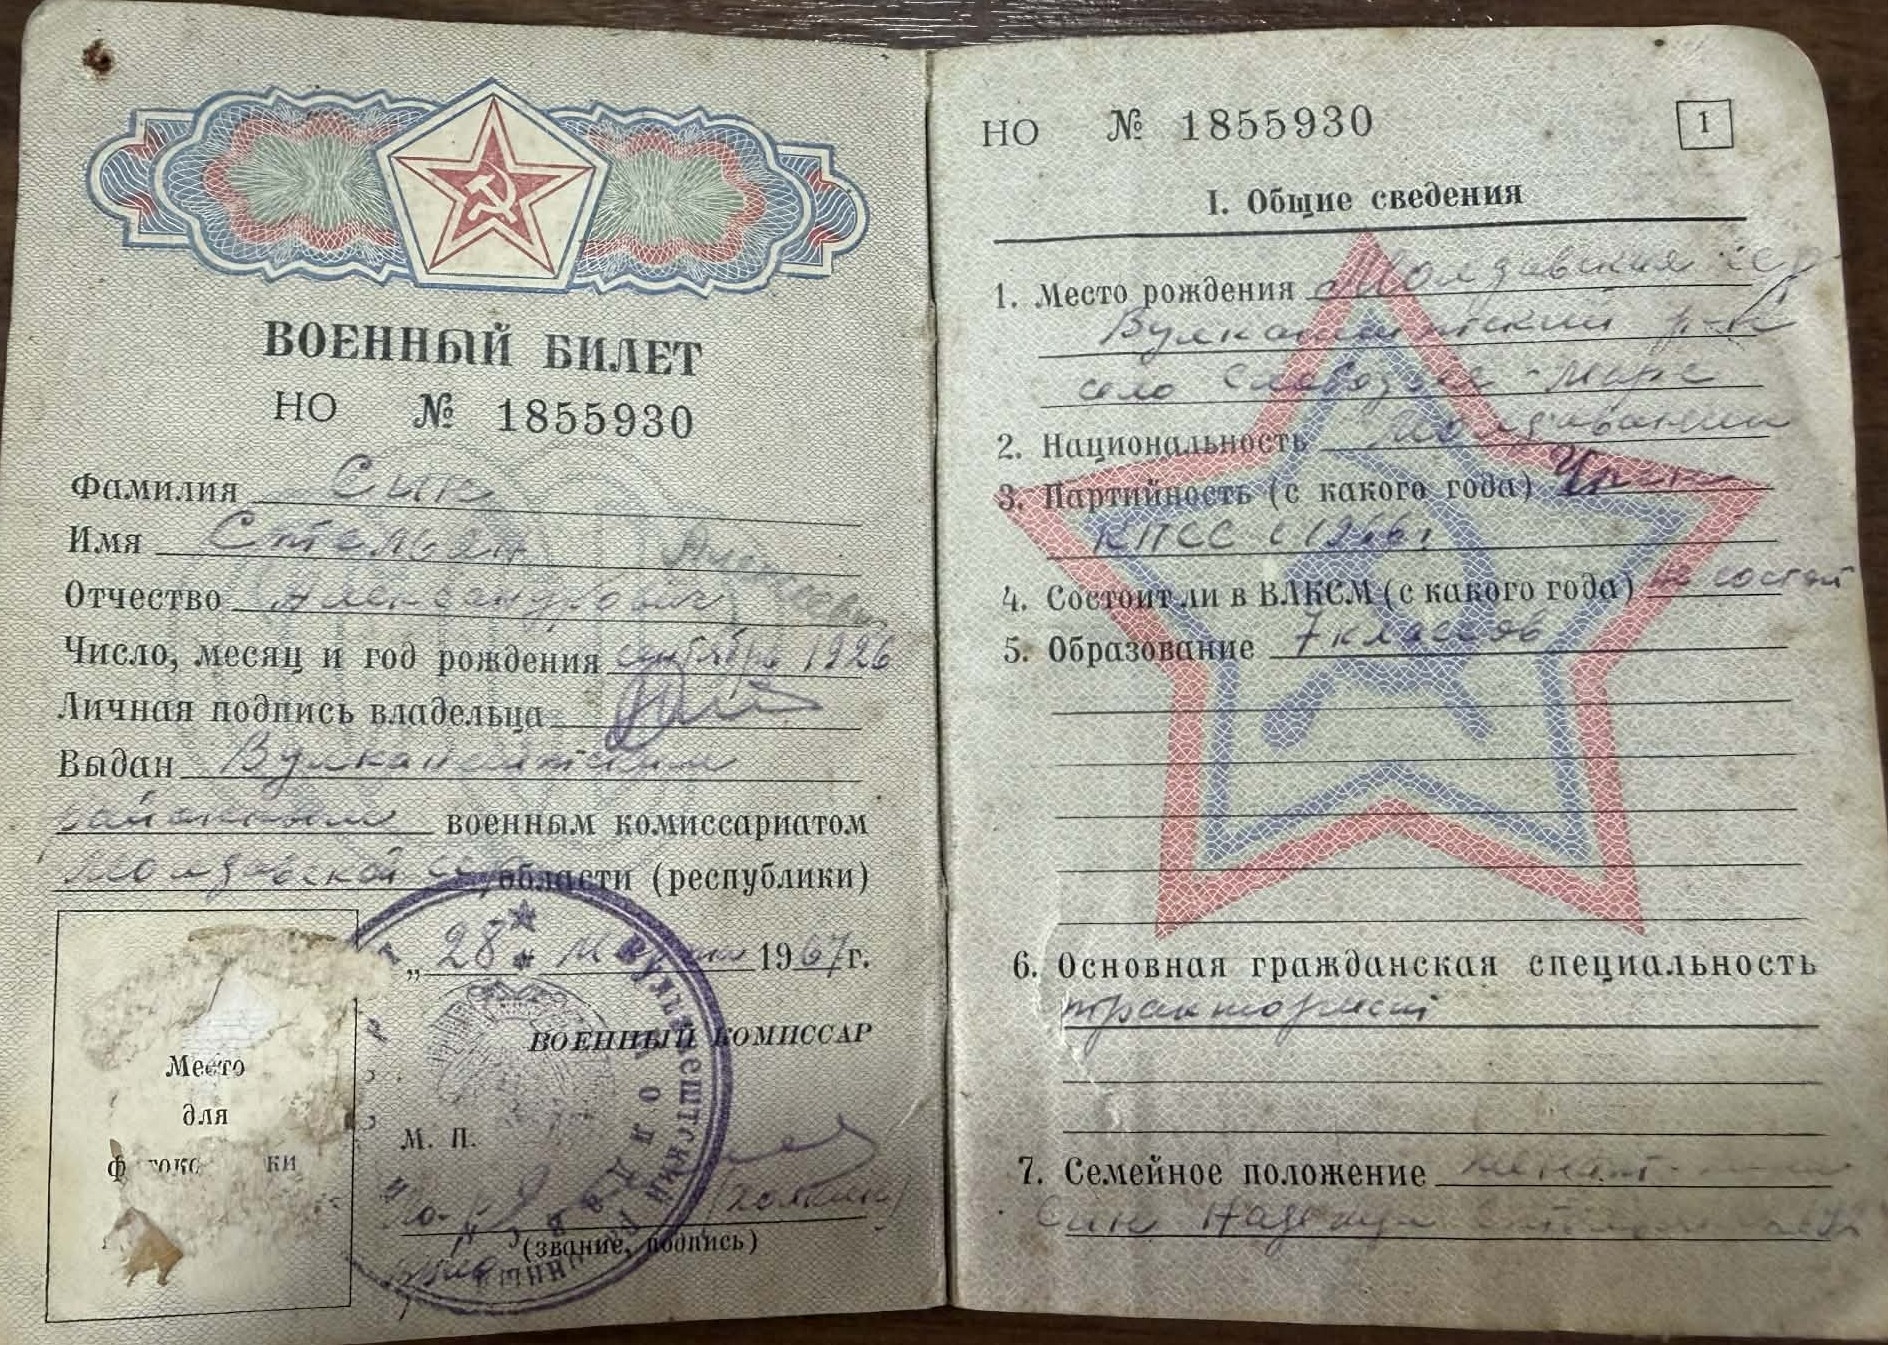 ВОЕННЫЙ БИЛЕТ
НО № 1855930
Фамилия Сык
Имя Стельян
Отчество Александрович
Число, месяц и год рождения 1926
Личная подпись владельца
Выдан Вулканештским
районным военным комиссариатом
Молдавской сср области (республики)
„28" 1967г.
ВОЕННЫЙ КОМИССАР
М. П.
(звание, подпись)
Место
для
НО № 1855930
1
I. Общие сведения
1. Место рождения Молдавская сср
Вулканештский р-н
село Слобозия-Маре
2. Национальность Молдаванин
3. Партийность (с какого года) Член
КПСС с 1966г
4. Состоит ли в ВЛКСМ (с какого года) не состоит
5. Образование 7 классов
6. Основная гражданская специальность
тракторист
7. Семейное положение женат - жена
Надежда